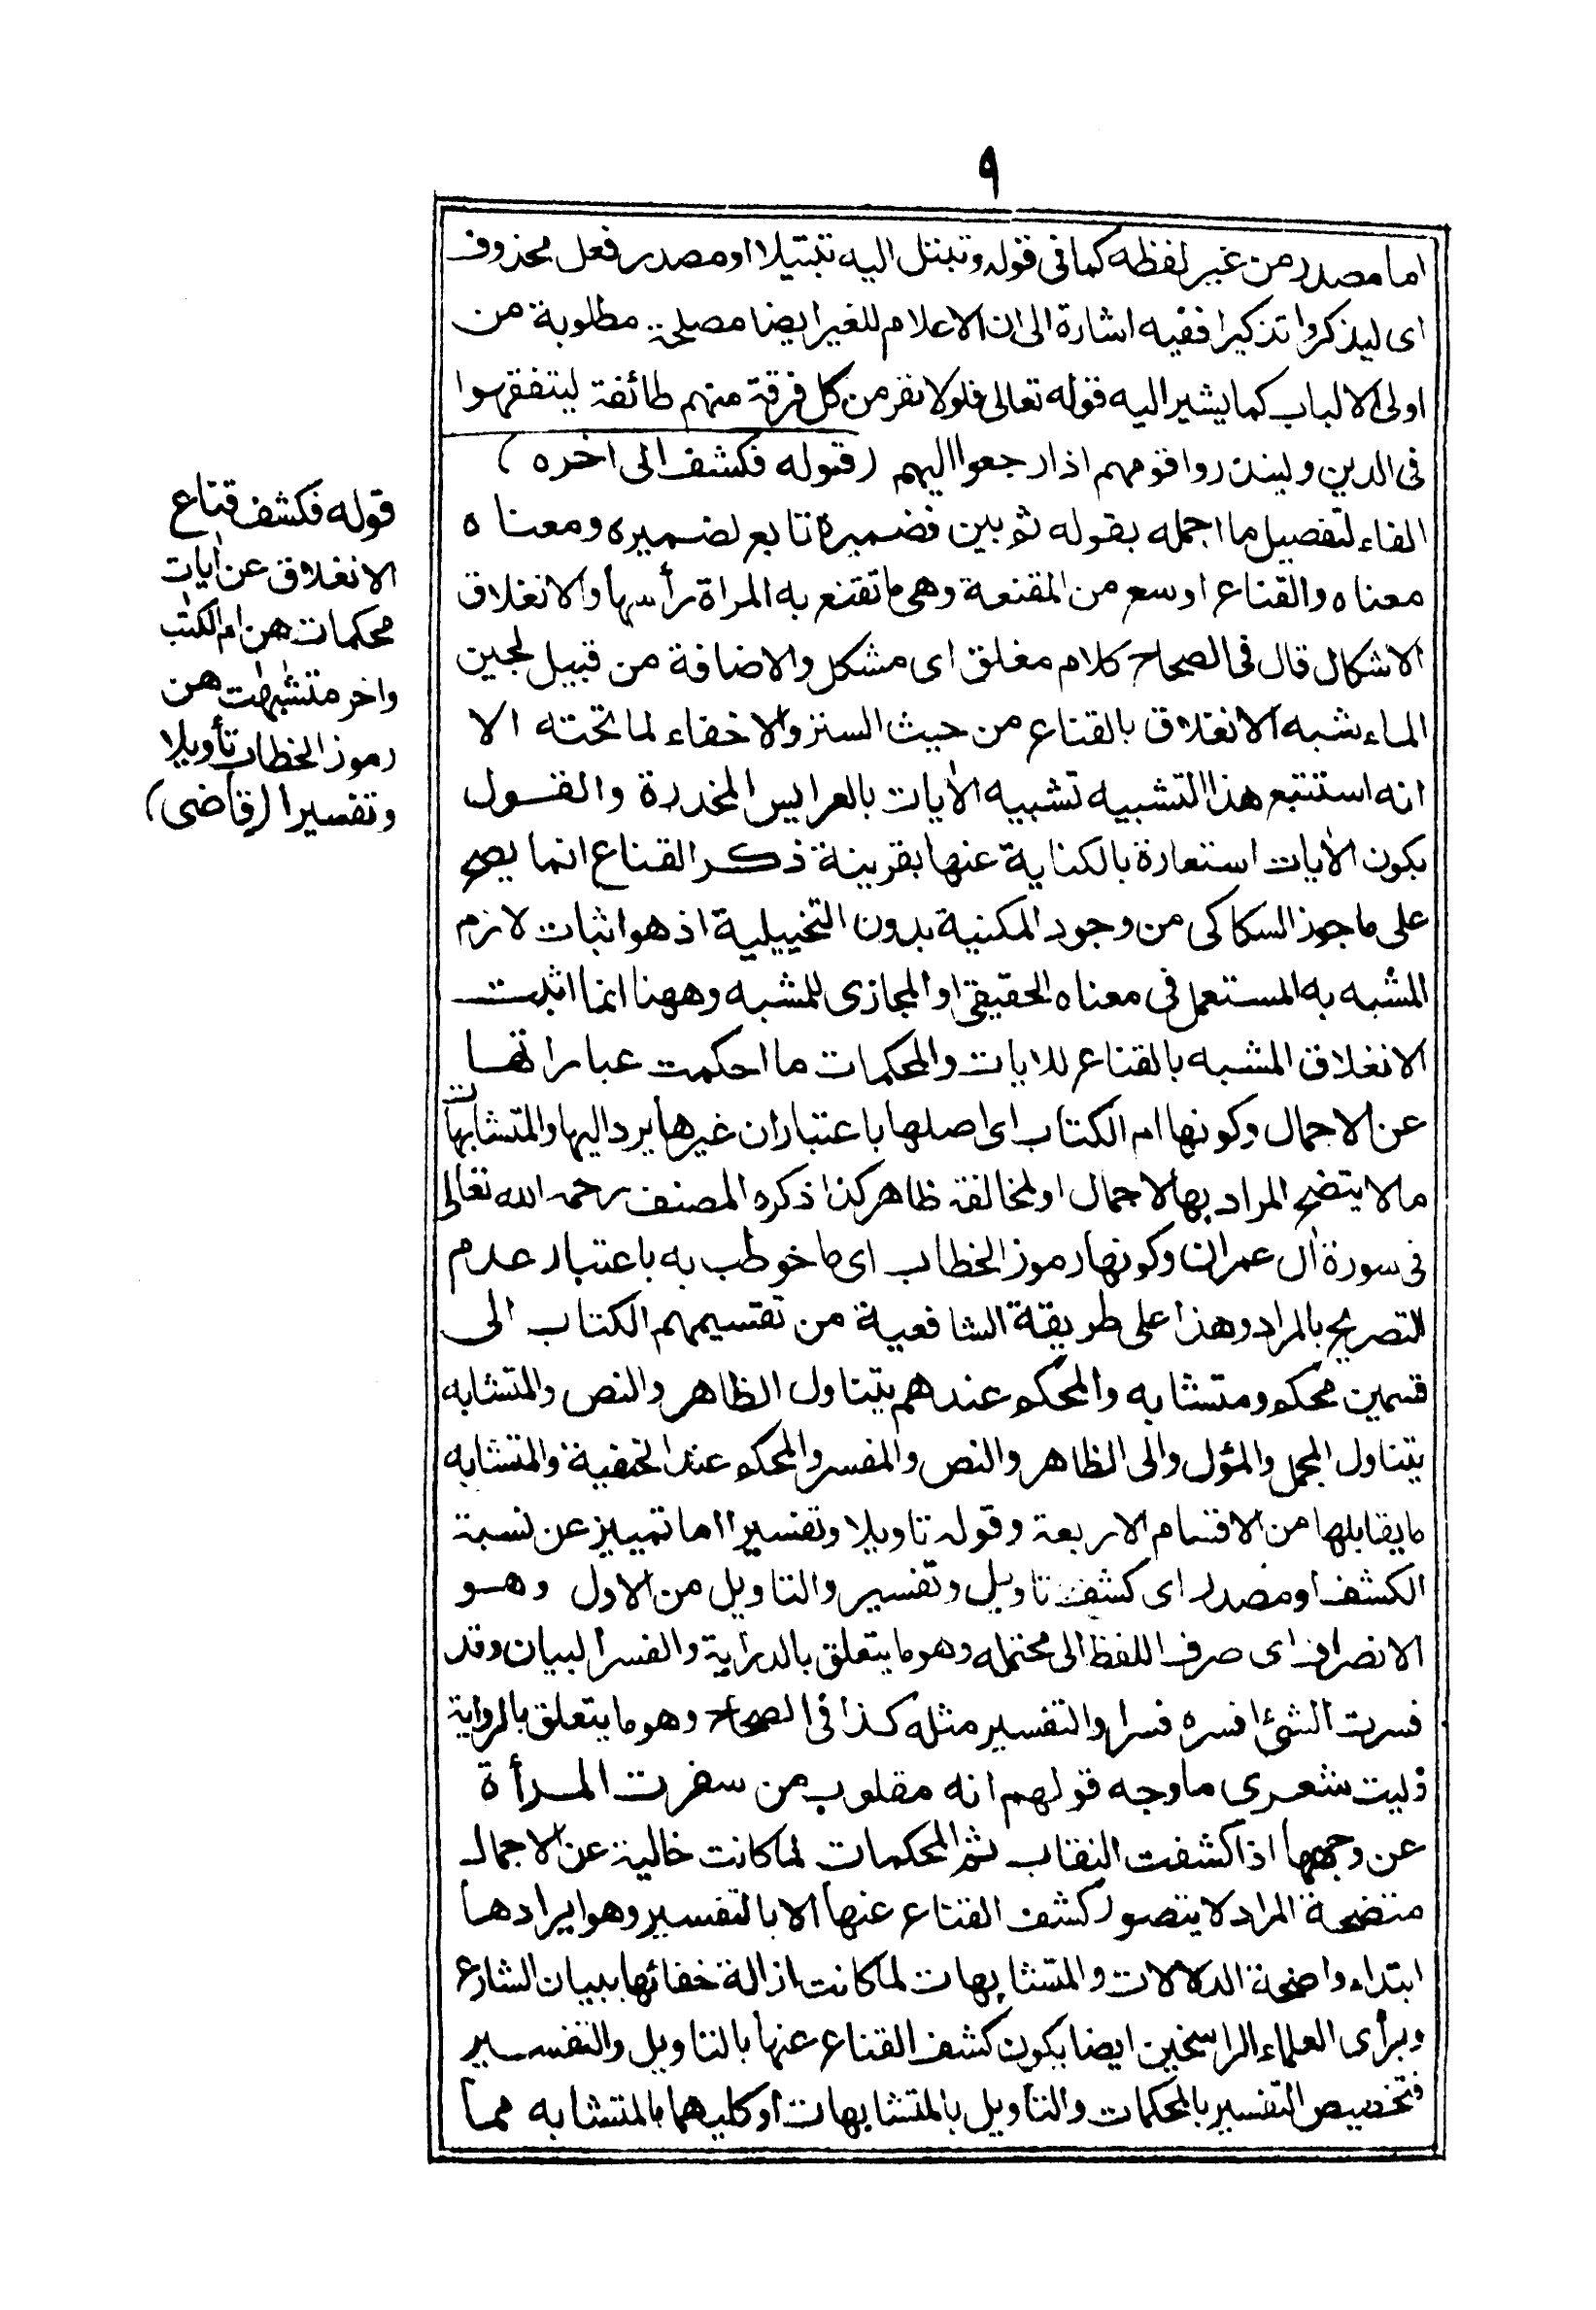 ٩
اما مصدر من غير لفظه كما فى قوله وتبتل اليه تبتيلا او مصدر فعل محذوف
اى ليذكروا تذكيرا ففيه اشارة الى ان الاعلام للغير ايضا مصلحة مطلوبة من
اولى الالباب كما يشير اليه قوله تعالى فلولا نفر من كل فرقة منهم طائفة ليتفقهوا
فى الدين ولينذروا قومهم اذا رجعوا اليهم (قوله فكشف الى اخره)
الفاء لتفصيل ما اجمله بقوله ثم بين فضميره تابع لضميره ومعناه
معناه والقناع اوسع من المقنعة وهى ما تقنع به المراة رأسها والانغلاق
الاشكال قال فى الصحاح كلام مغلق اى مشكل والاضافة من قبيل لجين
الماء شبه الانغلاق بالقناع من حيث الستر والاخفاء لما تحته الا
انه استتبع هذا التشبيه تشبيه الأيات بالعرايس المخدرة والقول
بكون الأيات استعارة بالكناية عنها بقرينة ذكر القناع انما يصح
على ما جوز السكاكى من وجود المكنية بدون التخييلية اذ هو اثبات لازم
المشبه به المستعمل فى معناه الحقيقى او المجازى للمشبه وههنا انما اثبت
الانغلاق المشبه بالقناع للايات والمحكمات ما احكمت عباراتها
عن الاجمال وكونها ام الكتاب اى اصلها باعتبار ان غيرها يرد اليها والمتشابهات
ما لا يتضح المراد بها لاجمال او لمخالفة ظاهر كذا ذكره المصنف رحمه الله تعالى
فى سورة أل عمران وكونها رموز الخطاب اى ما خوطب به باعتبار عدم
التصريح بالمراد وهذا على طريقة الشافعية من تقسيمهم الكتاب الى
قسمين محكم ومتشابه والمحكم عندهم يتناول الظاهر والنص والمتشابه
يتناول المجمل والمؤل والى الظاهر والنص والمفسر والمحكم عند الحنفية والمتشابه
ما يقابلها من الاقسام الاربعة وقوله تاويلا وتفسيرا اما تمييز عن نسبة
الكشف او مصدر اى كشف تاويل وتفسير والتاويل من الاول وهو
الانصراف اى صرف اللفظ الى محتمله وهو ما يتعلق بالدراية والفسر البيان وقد
فسرت الشئ افسره فسرا والتفسير مثله كذا فى الصحاح وهو ما يتعلق بالرواية
وليت شعرى ما وجه قولهم انه مقلوب من سفرت المرأة
عن وجهها اذا كشفت النقاب ثم المحكمات لما كانت خالية عن الاجمال
متضحة المراد لا يتصور كشف القناع عنها الا بالتفسير وهو ايرادها
ابتداء واضحة الدلالات والمتشابهات لما كانت ازالة خفائها ببيان الشارع
وبرأى العلماء الراسخين ايضا يكون كشف القناع عنها بالتاويل والتفسير
فتخصيص التفسير بالمحكمات والتاويل بالمتشابهات او كليهما بالمتشابه مما
قوله فكشف قناع
الانغلاق عن أيات
محكمات هن ام الكتب
واخر متشبهت هن
رموز الخطاب تأويلا
وتفسيرا (قاضى)